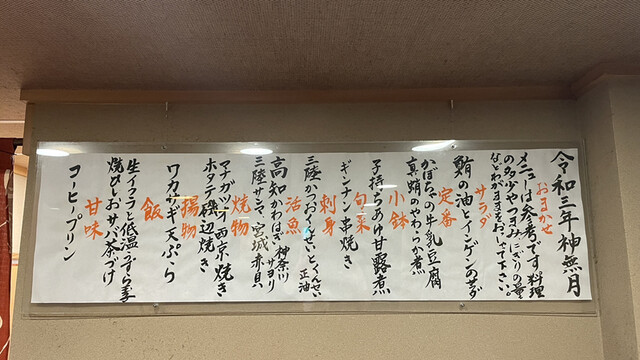 令和三年神無月
おまかせ
メニューは参考です 料理
の多少やつまみにぎりの量
などわがままをおっしゃって下さい。
サラダ
鮪の油とインゲンのサラダ
定番
かぼちゃの牛乳豆腐
真蛸のやわらか煮
小鉢
子持ちあゆ甘露煮
旬菜
ギンナン串焼き
刺身
三陸かつおくんせいとくんせい正油
活魚
高知かわはぎ 神奈川サヨリ
三陸サンマ 宮城赤貝
焼物
マナガツオ西京焼き
ホタテ磯辺焼き
揚物
ワカサギ天ぷら
飯
生イクラと低温うずら芋
焼ひとおサバ茶づけ
甘味
コーヒープリン